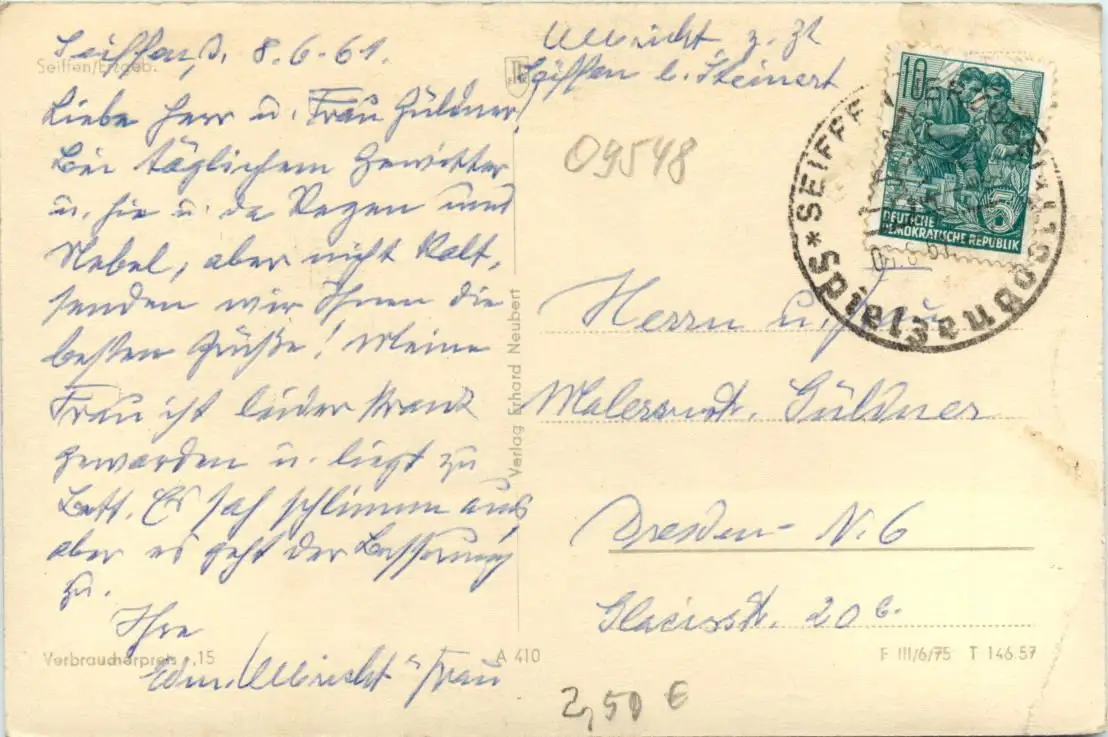 Seiffen, d. 8.6.61.
Seiffen/Erzgeb.
Liebe Herr u. Frau Güldner,
Bei täglichem Gewitter
u. hie u. da Regen und
Nebel, aber nicht kalt,
senden wir Ihnen die
besten Grüße! Meine
Frau ist leider krank
geworden u. liegt zu
Bett. Es sah schlimm aus,
aber es geht der Besserung
zu.
Ihre
Edm. Ulbricht u Frau
Verbraucherpreis -,15
A 410
Verlag Erhard Neubert
Ulbricht z. Zt
Seiffen b. Steinert
09548
10
DEUTSCHE
DEMOKRATISCHE REPUBLIK
5
* SEIFFEN
Spielsachen
Herrn u. Frau
Malermstr. Güldner
Dresden- N. 6
Glacisstr. 20 c.
F III/6/75 T 146.57
2,50 €